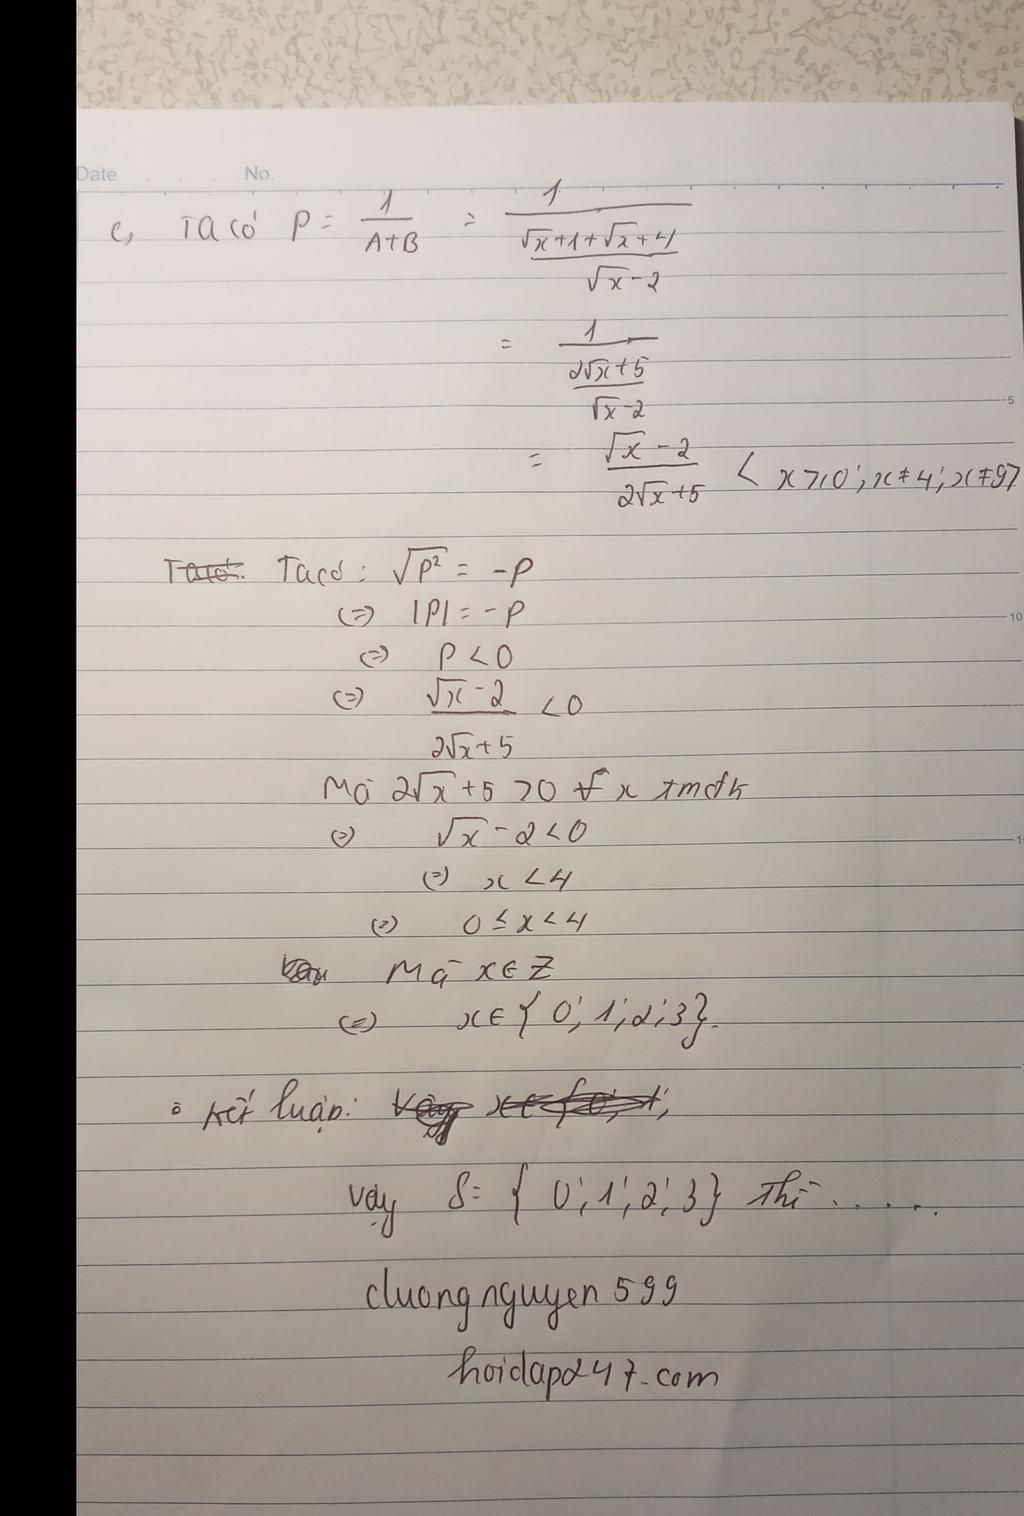 Date No.
c, Ta có P = 1/(A+B) = 1/((√x+1+√x+4)/(√x-2))
= 1/((2√x+5)/(√x-2))
= (√x-2)/(2√x+5) < x⩾0; x≠4; x≠9>
5
Ta có: √P² = -P
(=) |P| = -P
10
(=) P < 0
(=) (√x-2)/(2√x+5) < 0
Mà 2√x+5 >0 ∀x tmđk
(=) √x - 2 < 0
(=) x < 4
(=) 0 ≤ x < 4
Mà x∈Z
(=) x∈{0;1;2;3}.
Kết luận:
Vậy S= {0;1;2;3} thì .....
cluongnguyen599
hoidap247.com